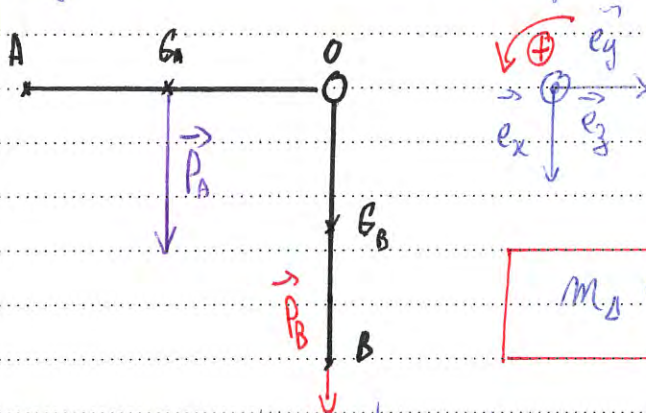 A G_A O ⊕ \vec{e_y}
\vec{e_x} \vec{e_z}
\vec{P_A}
G_B
m_Δ
\vec{P_B}
B